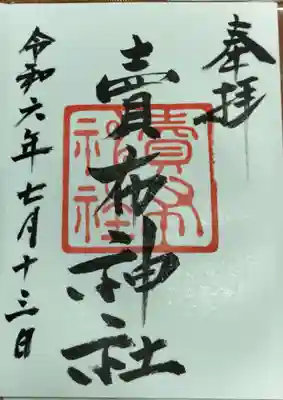 奉拝
賣布神社
賣布
神社
令和六年七月十三日